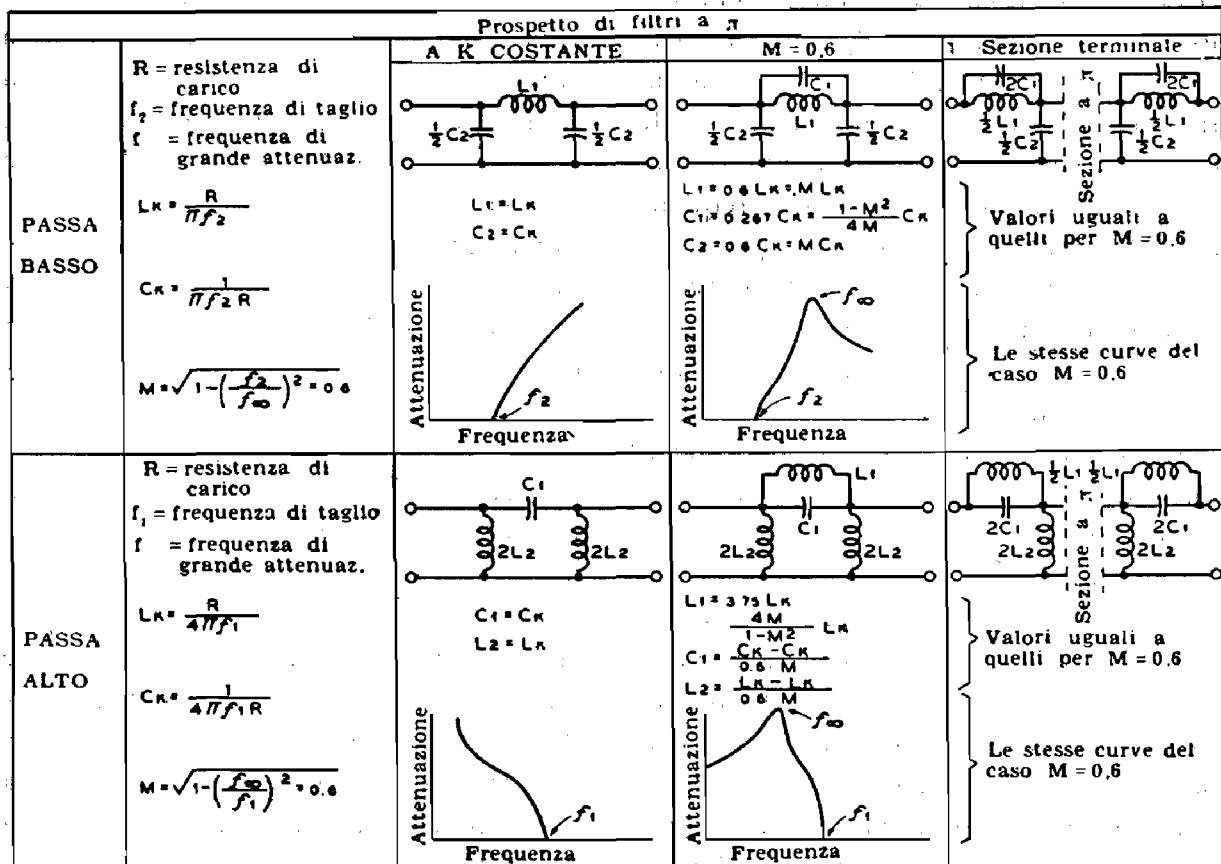 Prospetto di filtri a π
A K COSTANTE
M = 0,6
Sezione terminale
PASSA
BASSO
R = resistenza di
carico
f₂ = frequenza di taglio
f = frequenza di
grande attenuaz.
Lк = R / πf₂
Cк = 1 / πf₂R
M = √1-(f₂/f∞)² = 0,6
L₁
½C₂
½C₂
L₁ = Lк
C₂ = Cк
Attenuazione
f₂
Frequenza
C₁
L₁
½C₂
½C₂
L₁ = 0,6 Lк = M Lк
C₁ = 0,267 Cк = 1-M² / 4M Cк
C₂ = 0,6 Cк = M Cк
Attenuazione
f∞
f₂
Frequenza
2C₁
½L₁
½C₂
Sezione a π
2C₁
½L₁
½C₂
Valori uguali a
quelli per M = 0,6
Le stesse curve del
caso M = 0,6
PASSA
ALTO
R = resistenza di
carico
f₁ = frequenza di taglio
f = frequenza di
grande attenuaz.
Lк = R / 4πf₁
Cк = 1 / 4πf₁R
M = √1-(f∞/f₁)² = 0,6
C₁
2L₂
2L₂
C₁ = Cк
L₂ = Lк
Attenuazione
f₁
Frequenza
L₁
C₁
2L₂
2L₂
L₁ = 3,75 Lк
4M / 1-M² Lк
C₁ = Cк - Cк / 0,6 M
L₂ = Lк - Lк / 0,6 M
Attenuazione
f∞
f₁
Frequenza
½L₁
½L₁
2C₁
2L₂
Sezione a π
2C₁
2L₂
Valori uguali a
quelli per M = 0,6
Le stesse curve del
caso M = 0,6